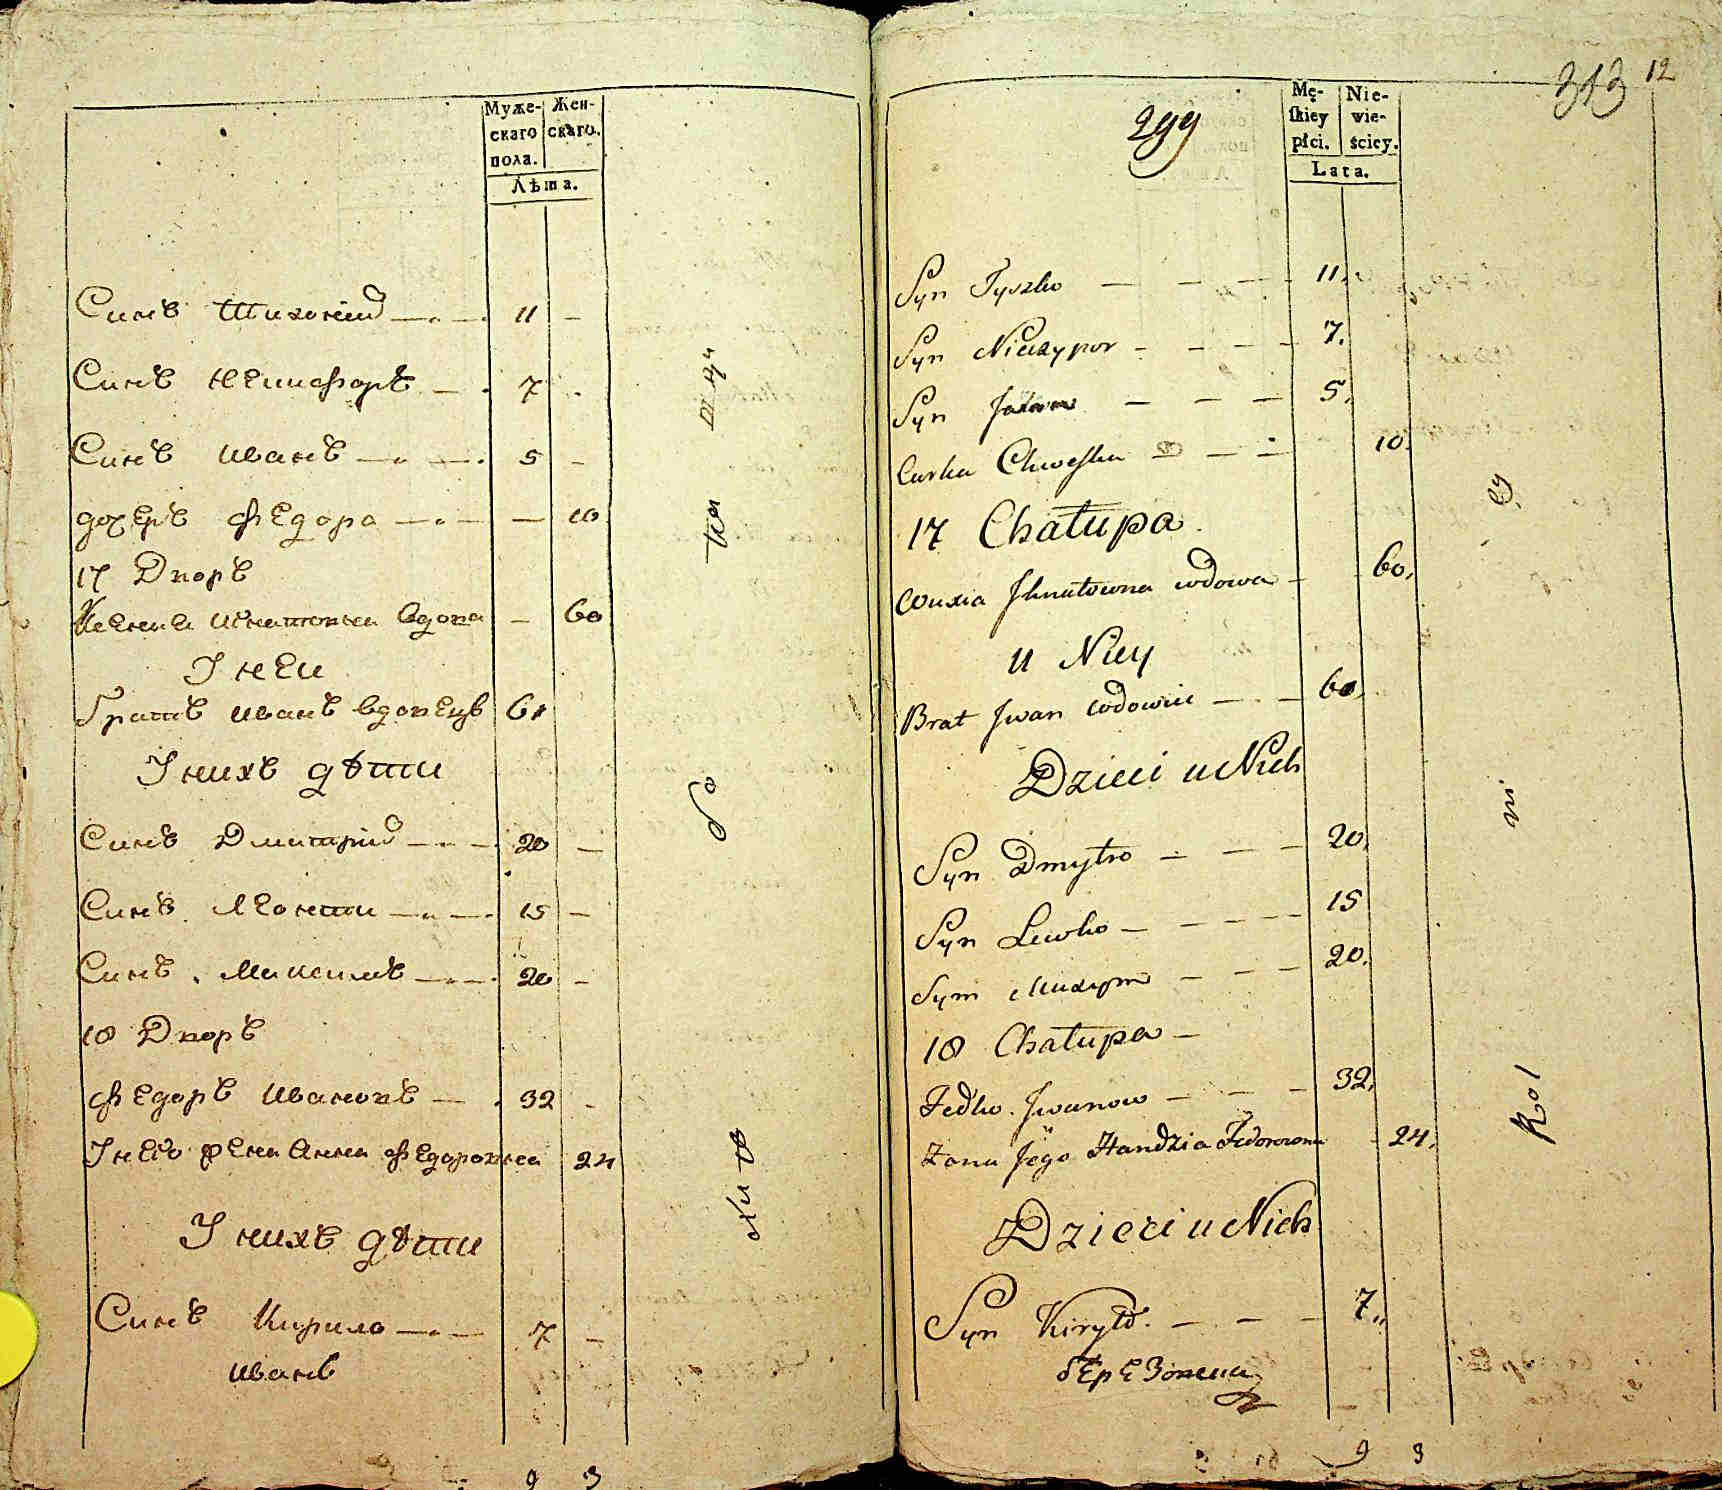 Муже-
скаго
пола.
Жен-
скаго.
Лѣта.
Синъ Тихоній 11
Синъ Никифоръ 7
Синъ иванъ 5
дочеръ федора 10
17 Дворъ
вдова 60
У неи
братъ иванъ вдовецъ 61
У нихъ дѣти
Синъ Дмитрій 20
Синъ Леонти 15
Синъ Максимъ 20
18 Дворъ
федоръ ивановъ 32
У него жена анна федоровна 24
У нихъ дѣти
Синъ Кирило 7
иванъ
9 3
313 12
299
Mę-
skiey
płci.
Nie-
wie-
ściey.
Lata.
Syn Tyszko 11.
Syn Niczypor 7.
Syn 5.
Curka Chweska 10.
17 Chałupa
Ihnatowna wdowa 60.
u Niey
Brat Jwan wdowiec
Dzieci u Nich
Syn Dmytro 20.
Syn Lewko 15
Syn Maxym 20.
18 Chałupa
Fedko Jwanow 32.
Żona Jego Handzia Fedorowna 24.
Dzieci u Nich
Syn Kiryło 7.
березовски
9 3